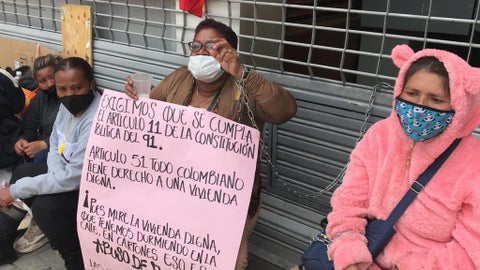 EXIGIMOS QUE SE CUMPLA
EL ARTICULO 11 DE LA CONSTITUCIÓN
POLITICA DEL 91.
ARTICULO 51 TODO COLOMBIANO
TIENE DERECHO A UNA VIVIENDA
DIGNA.
¡PUES MIRE LA VIVIENDA DIGNA,
QUE TENEMOS DURMIENDO EN LA
CALLE, EN CARTONES ESO ES
ABUSO DE